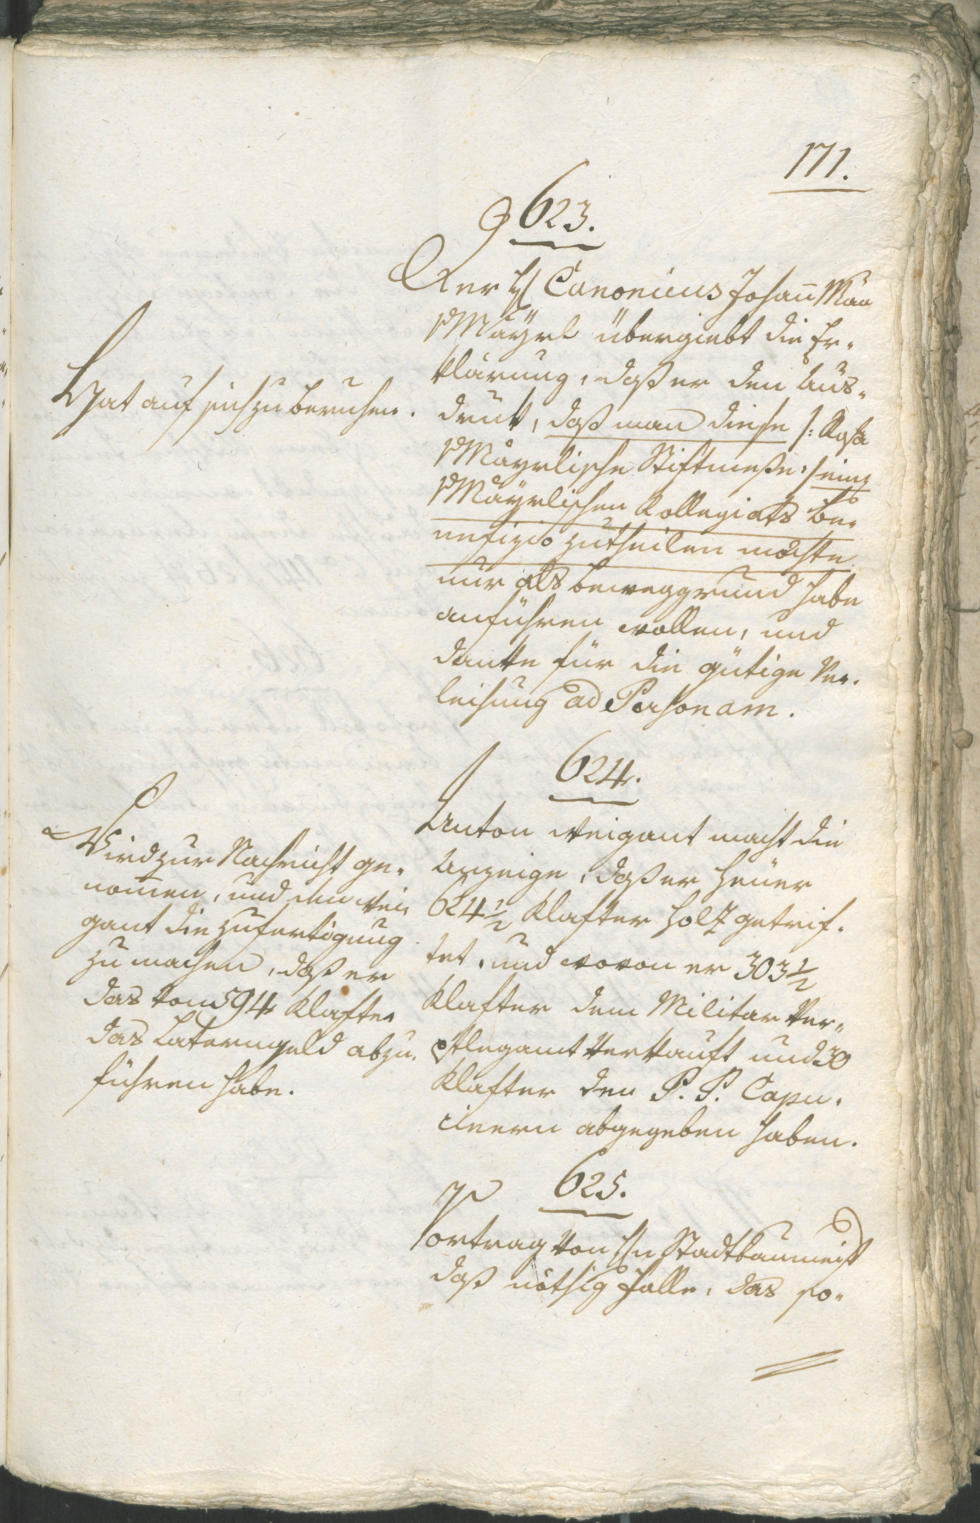 171.
623.
Der H Canonicus Johan
Mäyrl übergiebt die Er-
klärung, daß er den Aus-
druk, daß man diese /: 
Mäyrlische Stiftmeße :/ einem
Mäyrlischen Kollegiats Be-
nefizio zutheilen möchte
nur als Beweggrund habe
anführen wollen, und
dankte für die gütige Ver-
leihung ad Personam.
Hat auf sich zu beruhen.
624.
Anton Weigant macht die
Anzeige, daß er heuer
624½ Klafter Holz getrif-
tet, und wovon er 303½
Klafter dem Militar Ver-
pflegamt verkauft und 30
Klafter den P. P. Capu-
cinern abgegeben haben.
Wird zur Nachricht ge-
nommen, und dem Wei-
gant die Zufertigung
zu machen, daß er
das von 594 Klafter
das Laterngeld abzu-
führen habe.
625.
Vortrag von Hn Stadtbaumeist
daß nöthig falle, das so-